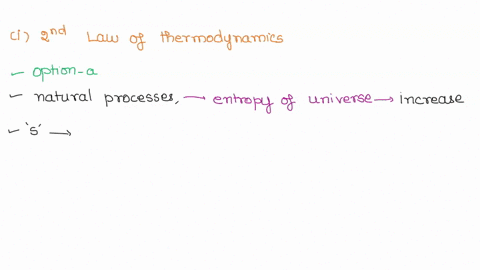 (i) 2nd Law of thermodynamics
- option-a
- natural processes, → entropy of universe → increase
- 's' →